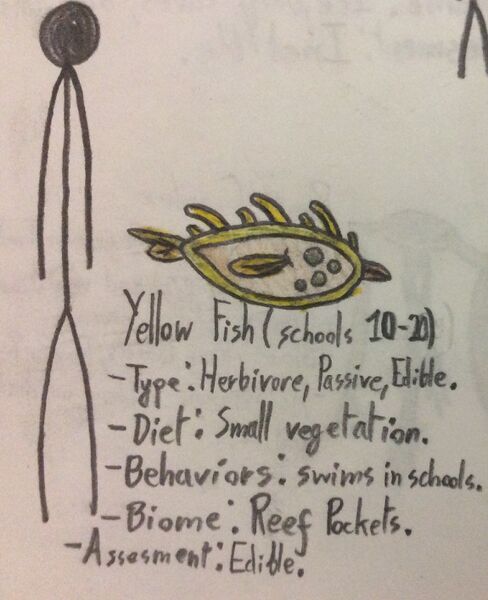 Yellow Fish (schools 10-20)
-Type: Herbivore, Passive, Edible.
-Diet: Small vegetation.
-Behaviors: swims in schools.
-Biome: Reef Pockets.
-Assesment: Edible.